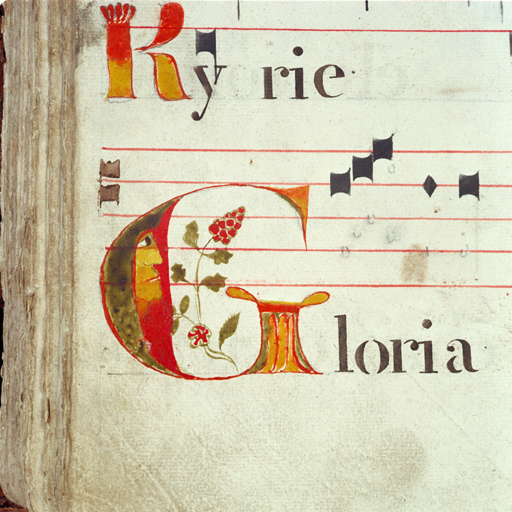 Kyrie
Gloria